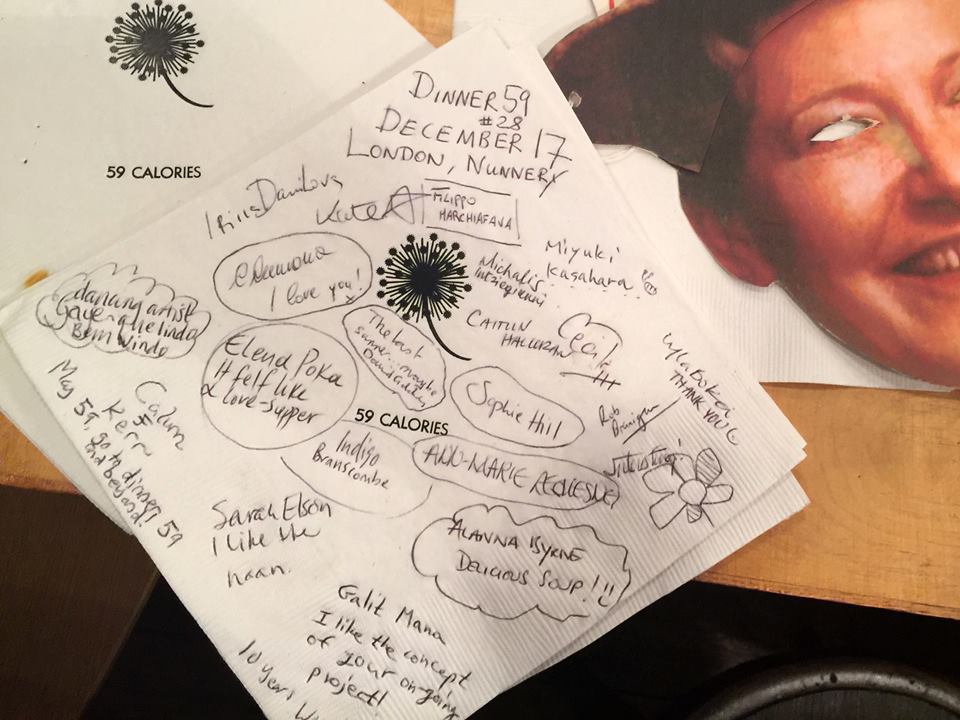 59 CALORIES
DINNER 59
#28
DECEMBER 17
LONDON, NUNNERY
Irina Danilova
FILIPPO
MARCHIAFAVA
I love you!
Miyuki
Kasahara
Michalis
CAITLIN
HALLORAN
dancing artist
Bem Vindo
The last
supper... maybe
Elena Poka
It felt like
a love-supper
59 CALORIES
Sophie Hill
THANK YOU
Rob
Indigo
Branscombe
ANU-MARIE
Calum
Kerr
May 59, go to dinner 59
and beyond.
Sarah Elson
I like the
naan.
ALANNA BYRNE
DELICIOUS SOUP!
Galit Mana
I like the concept
of your on-going
project!
10 years